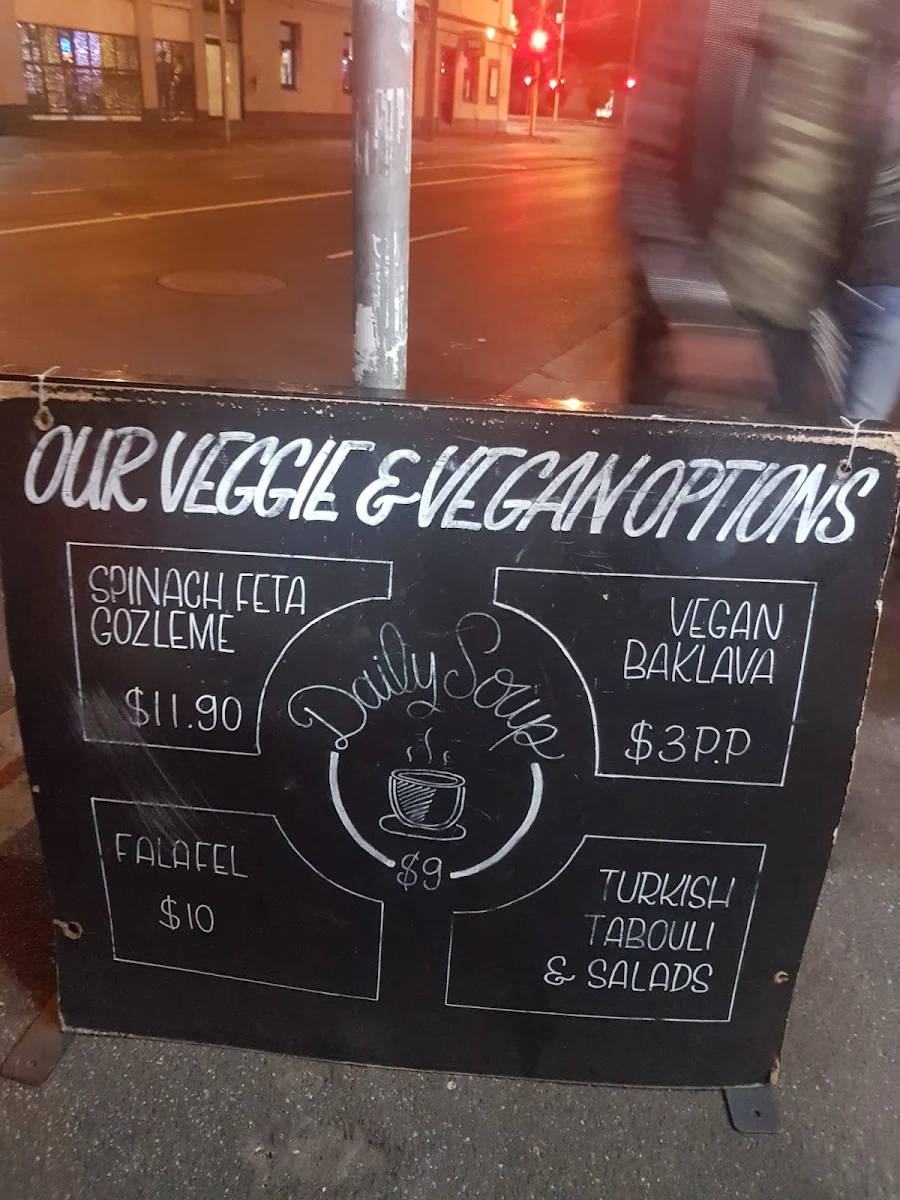 OUR VEGGIE & VEGAN OPTIONS
SPINACH FETA
GOZLEME
$11.90
VEGAN
BAKLAVA
$3P.P
Daily Soup
$9
FALAFEL
$10
TURKISH
TABOULI
& SALADS